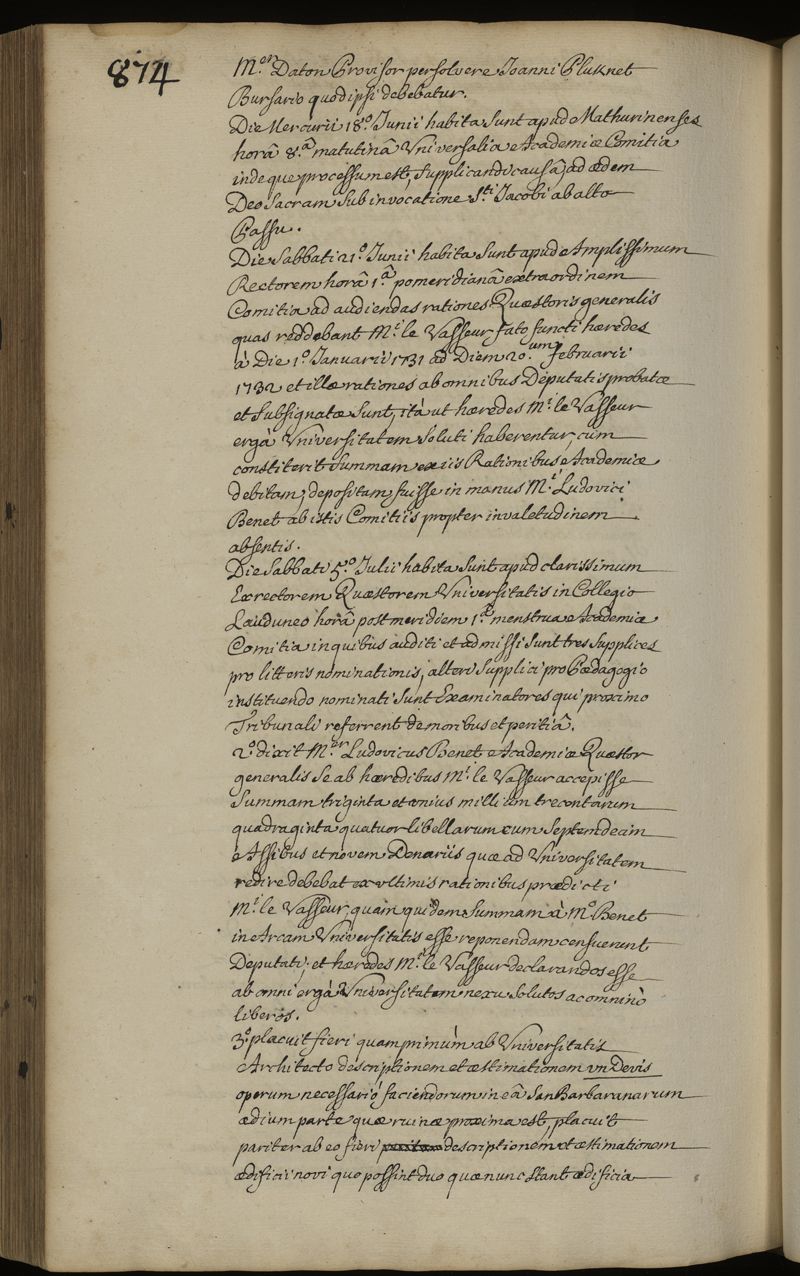 874
M.er Daton Provisor persolvere Joanni Plusknet
Bursario quod ipsi debebatur.
Die Mercurii 18.º Junii habita sunt apud Mathurinenses
horâ 8.ª matutinâ Universalia Academiæ Comitia
indeque processum est, supplicandi causâ, ad ædem
Deo Sacram sub invocatione S.ti Jacobi ab alto
Passu.
Die Sabbati 21.º Junii habita sunt apud Amplissimum
Rectorem horâ 1.ª pomeridianâ extra ordinem
Comitia ad audiendas rationes Quæstoris generalis
quas reddebant M.i le Vasseur fato functi hæredes
à Die 1.º Januarii 1731 ad Diem 20.um februarii
1732 et illæ rationes ab omnibus Deputatis probatæ
et subsignatæ sunt, ità ut hæredes M.i le Vasseur
ergà Universitatem soluti haberentur, cum
constiterit summam ex iis Rationibus Academiæ
debitam, depositam fuisse in manus M.i Ludovici
Benet ab istis Comitiis propter invaletudinem
absentis.
Die Sabbati 5.º Julii habita sunt apud clarissimum
Exrectorem Quæstorem Universitatis in Collegio
Lauduneo horâ post meridiem 1.ª menstrua Academiæ
Comitia in quibus auditi et admissi sunt tres supplices
pro litteris nominationis, alteri supplici pro Pædagogio
instituendo nominati sunt Examinatores qui proximo
Tribunali referrent de moribus et peritiâ.
2.º dixit M.er Ludovicus Benet Academiæ Quæstor
generalis se ab hæredibus M.i le Vasseur accepisse
summam triginta et unius millium trecentarum
quadraginta quatuor libellarum cum septemdecim
Assibus et novem Denariis quæ ad Universitatem
redire debebat ex ultimis rationibus prædicti
M.i le Vasseur, quam quidem summam à M.o Benet
in Arcam Universitatis esse reponendam censuerunt
Deputati, et hæredes M.i le Vasseur declarandos esse
ab omni ergà Universitatem nexu solutos ac omninò
liberos.
3.º placuit fieri quamprimùm ab Universitatis
Architecto descriptionem et æstimationem un Devis
operum necessariò faciendorum in eâ San Barbaranarum
ædium parte quæ ruinæ proxima est, placuit
pariter ab eo fieri descriptionem et æstimationem
ædificii novi quo possint duo quæ nunc stant ædificia